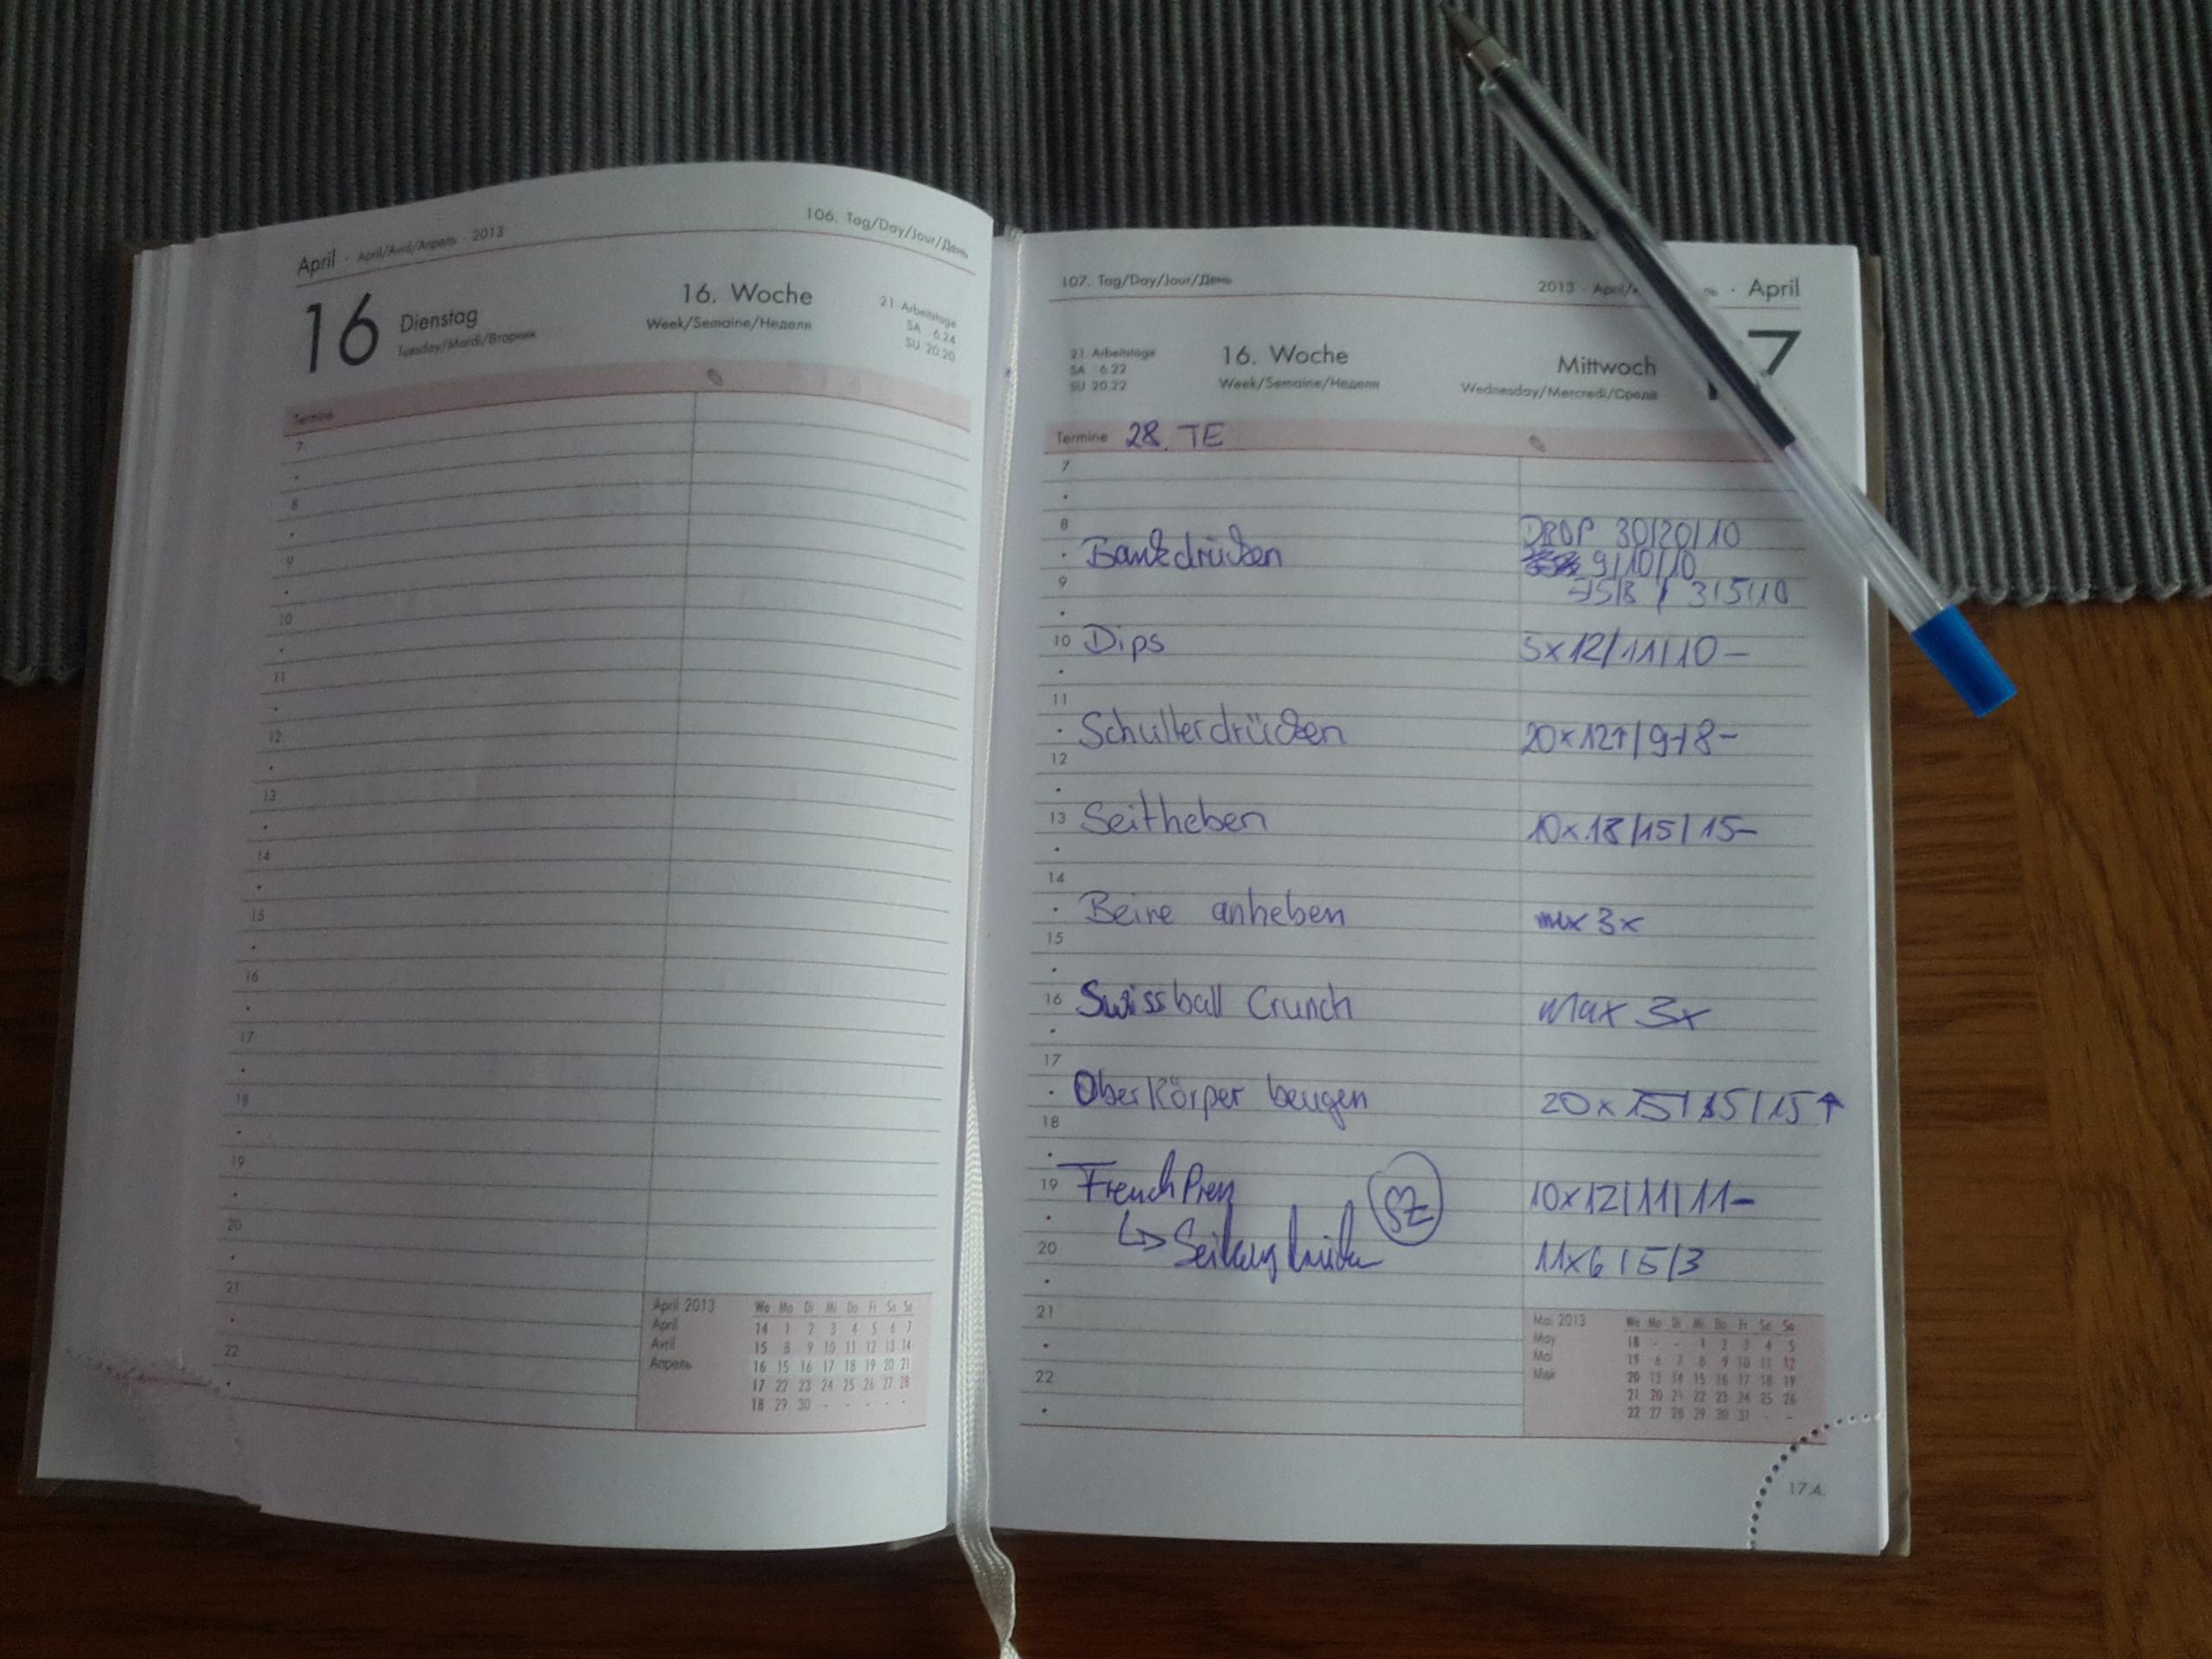 April · April/Avril/Апрель · 2013
106. Tag/Day/Jour/День
16
Dienstag
Tuesday/Mardi/Вторник
16. Woche
Week/Semaine/Неделя
21 Arbeitstage
SA 6.24
SU 20.20
Termine
7
8
9
10
11
12
13
14
15
16
17
18
19
20
21
22
April 2013
April
Avril
Апрель
We Mo Di Mi Do Fr Sa So
14 1 2 3 4 5 6 7
15 8 9 10 11 12 13 14
16 15 16 17 18 19 20 21
17 22 23 24 25 26 27 28
18 29 30 - - - - -
107. Tag/Day/Jour/День
2013 · April/ · April
21 Arbeitstage
SA 6.22
SU 20.22
16. Woche
Week/Semaine/Неделя
Mittwoch
Wednesday/Mercredi/Среда
7
Termine 28. TE
7
8 DROP 30/20/10
Bankdrücken 9/10/10
9 3/5/10
10 Dips 5x12/11/10-
11
Schulterdrücken 20x12↑/9-/8-
12
13 Seitheben 10x18/15/15-
14
Beine anheben max 3x
15
16 Swissball Crunch Max 3x
17
Oberkörper beugen 20x15/15/15↑
18
19 French Press SZ 10x12/11/11-
20 ↳ 11x6/5/3
21
22
Mai 2013
May
Mai
Май
We Mo Di Mi Do Fr Sa So
18 - - 1 2 3 4 5
19 6 7 8 9 10 11 12
20 13 14 15 16 17 18 19
21 20 21 22 23 24 25 26
22 27 28 29 30 31 - -
17.4.